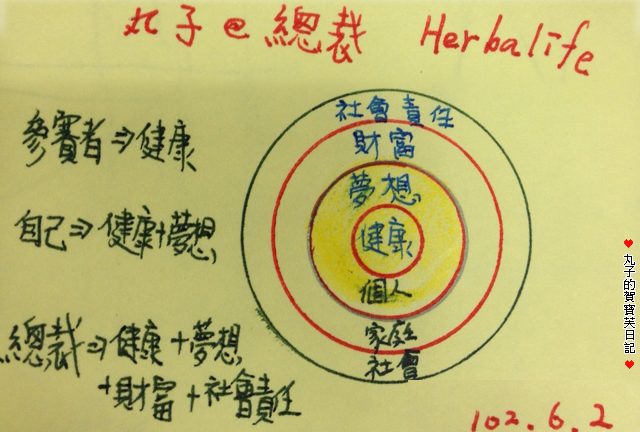 丸子@總裁 Herbalife
參賽者⇒健康
自己⇒健康+夢想
總裁⇒健康+夢想
+財富+社會責任
社會責任
財富
夢想
健康
個人
家庭
社會
102.6.2
♥丸子的賀寶芙日記♥